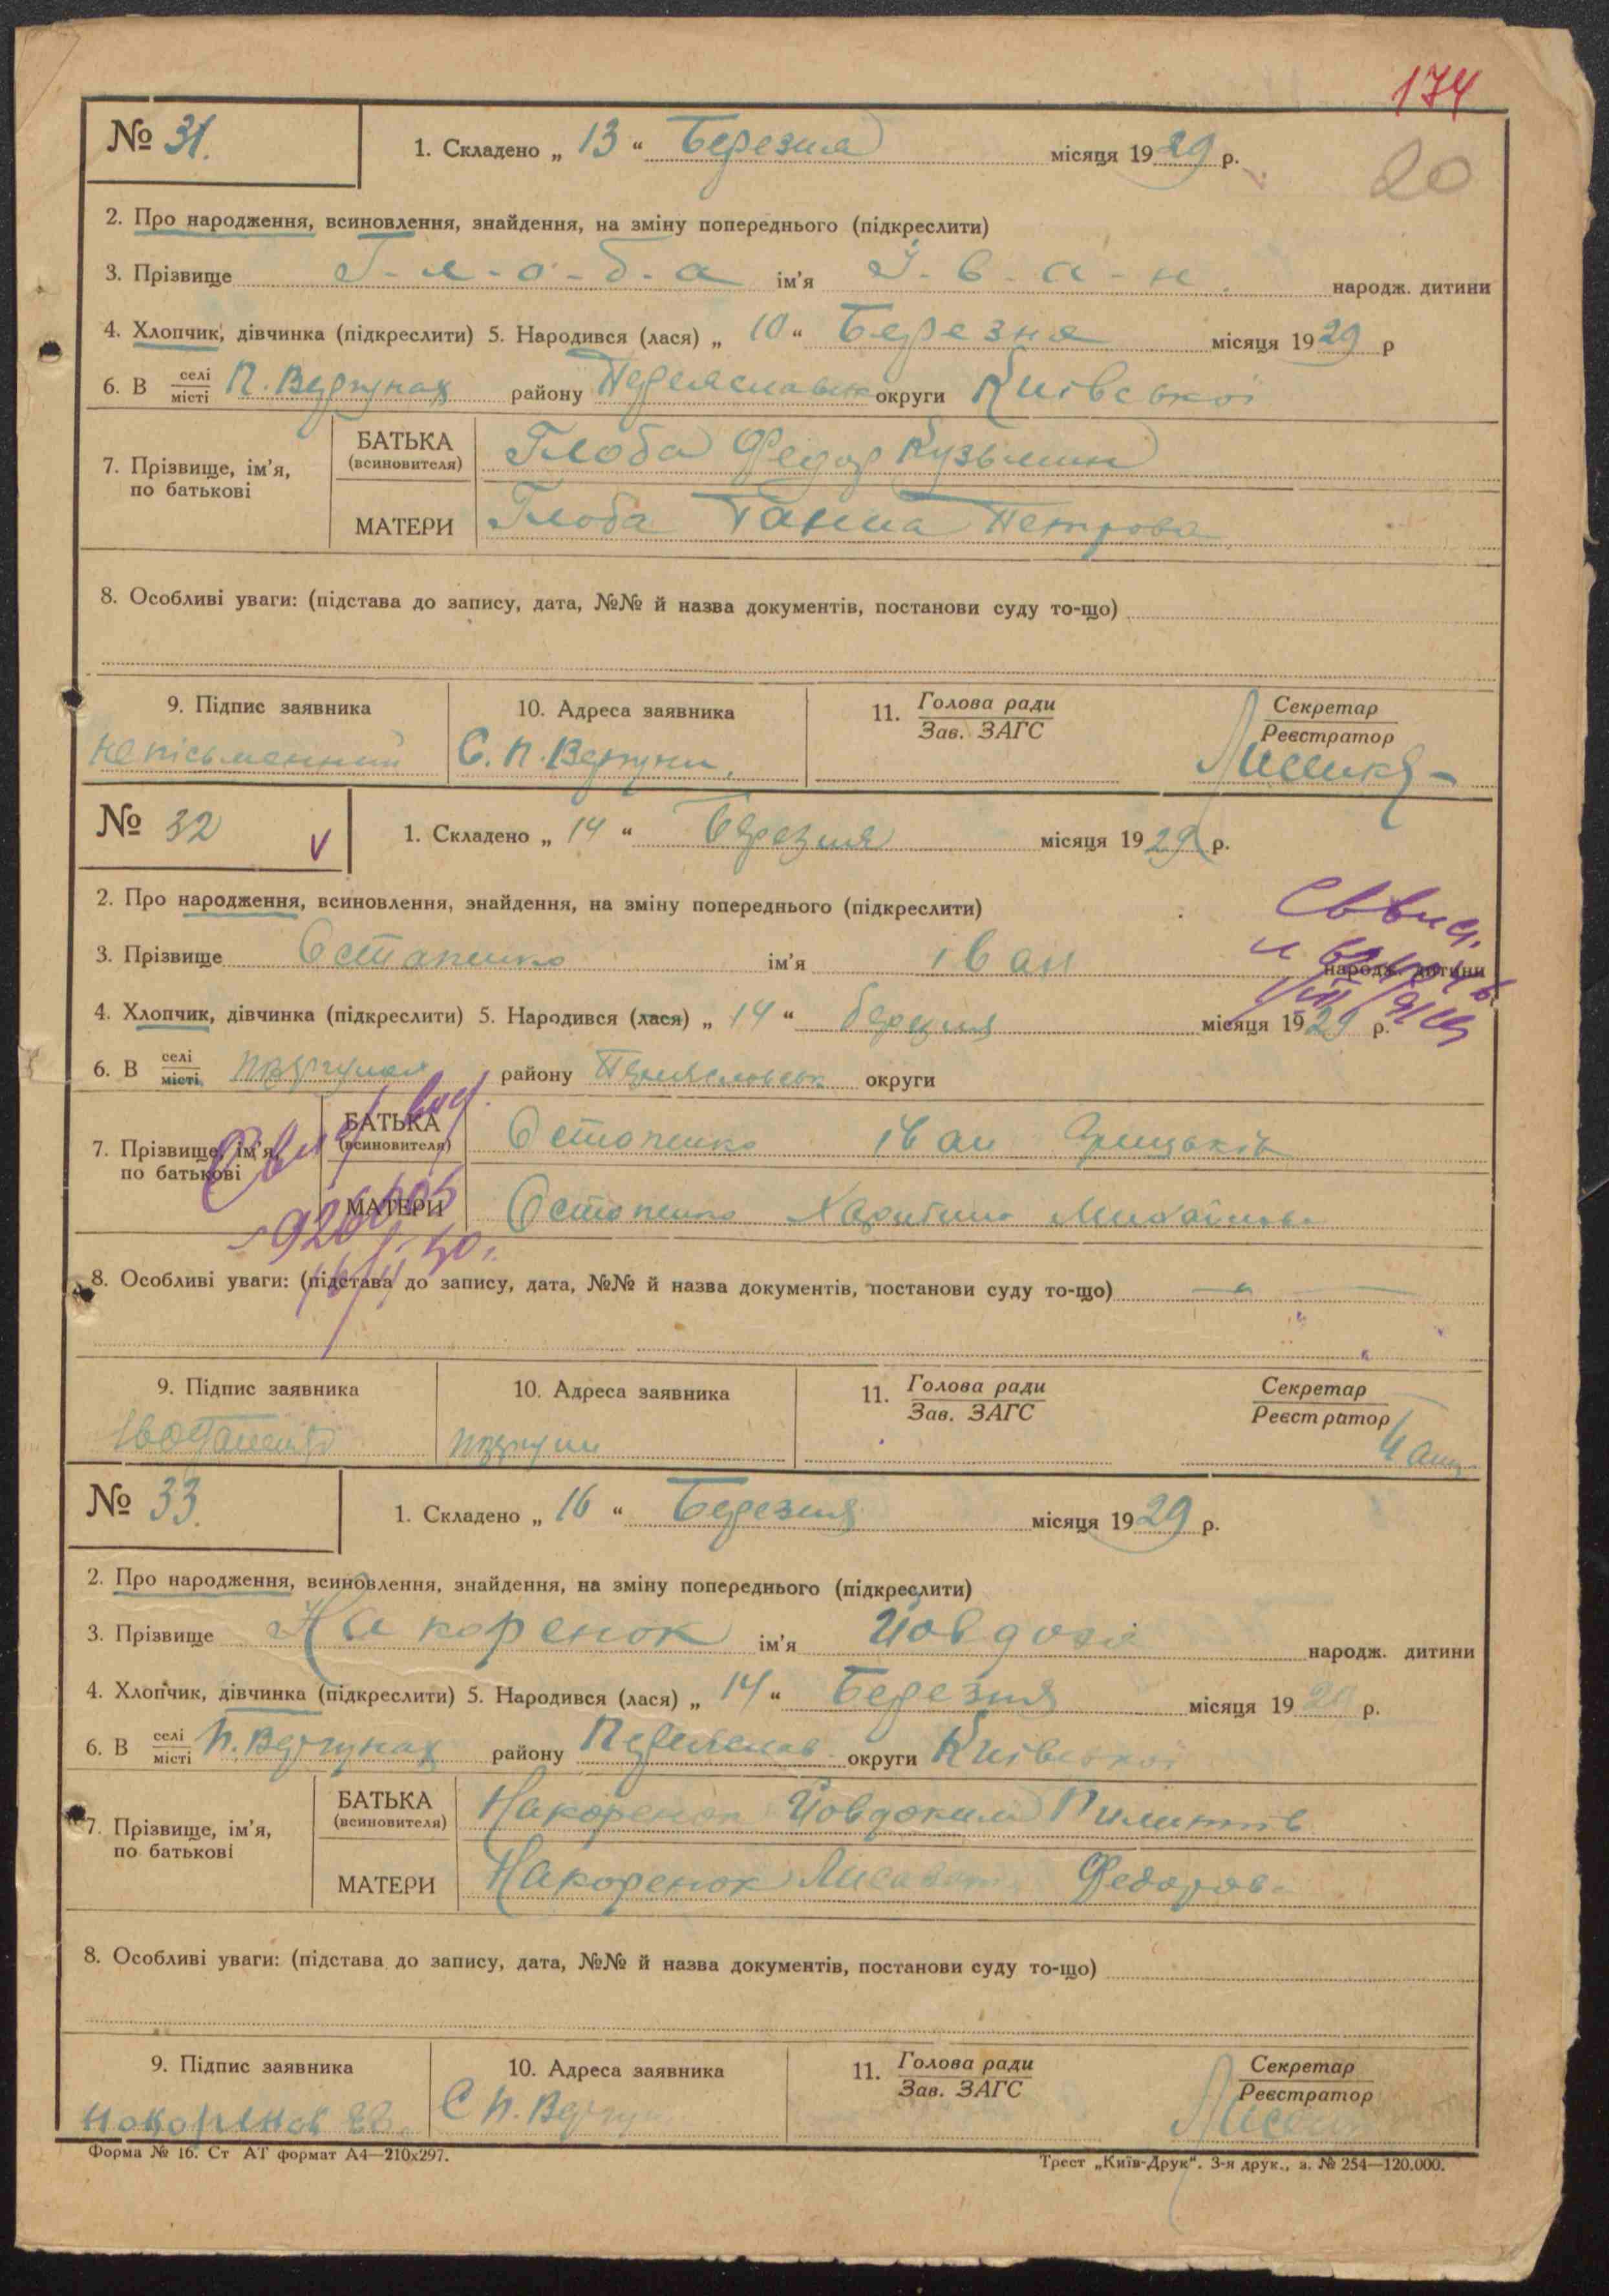 174
№ 31. 1. Складено „ 13 “ Березня місяця 1929 р.
20
2. Про народження, всиновлення, знайдення, на зміну попереднього (підкреслити)
3. Прізвище Г-л-о-б-а ім'я І-в-а-н. народж. дитини
4. Хлопчик, дівчинка (підкреслити) 5. Народився (лася) „ 10 “ Березня місяця 1929 р
6. В селі/місті П. Вергунах району Переяславськ округи Київської
7. Прізвище, ім'я, по батькові
БАТЬКА (всиновителя) Глоба Федор Кузьмин
МАТЕРИ Глоба Ганна Петрова
8. Особливі уваги: (підстава до запису, дата, №№ й назва документів, постанови суду то-що)
9. Підпис заявника 10. Адреса заявника 11. Голова ради/Зав. ЗАГС Секретар/Реєстратор
неписьменний С. П. Вергуни,
№ 32 V 1. Складено „ 14 “ Березня місяця 1929 р.
2. Про народження, всиновлення, знайдення, на зміну попереднього (підкреслити)
3. Прізвище Остапенко ім'я іван народж. дитини
4. Хлопчик, дівчинка (підкреслити) 5. Народився (лася) „ 14 “ березня місяця 1929 р.
6. В селі/місті району Переяславськ округи
7. Прізвище, ім'я, по батькові
БАТЬКА (всиновителя) Остапенко іван Грицьків
МАТЕРИ Остапенко Харитина Михайлова
8. Особливі уваги: (підстава до запису, дата, №№ й назва документів, постанови суду то-що)
9. Підпис заявника 10. Адреса заявника 11. Голова ради/Зав. ЗАГС Секретар/Реєстратор
№ 33. 1. Складено „ 16 “ Березня місяця 1929 р.
2. Про народження, всиновлення, знайдення, на зміну попереднього (підкреслити)
3. Прізвище Накоренок ім'я народж. дитини
4. Хлопчик, дівчинка (підкреслити) 5. Народився (лася) „ 14 “ Березня місяця 1929 р.
6. В селі/місті П. Вергунах району Переяслав округи Київської
7. Прізвище, ім'я, по батькові
БАТЬКА (всиновителя) Накоренок Йовдоким
МАТЕРИ Накоренок Лисавет Федорова
8. Особливі уваги: (підстава до запису, дата, №№ й назва документів, постанови суду то-що)
9. Підпис заявника 10. Адреса заявника 11. Голова ради/Зав. ЗАГС Секретар/Реєстратор
С П. Вергун
Форма № 16. Ст АТ формат А4—210х297. Трест „Київ-Друк“. 3-я друк., з. № 254—120.000.